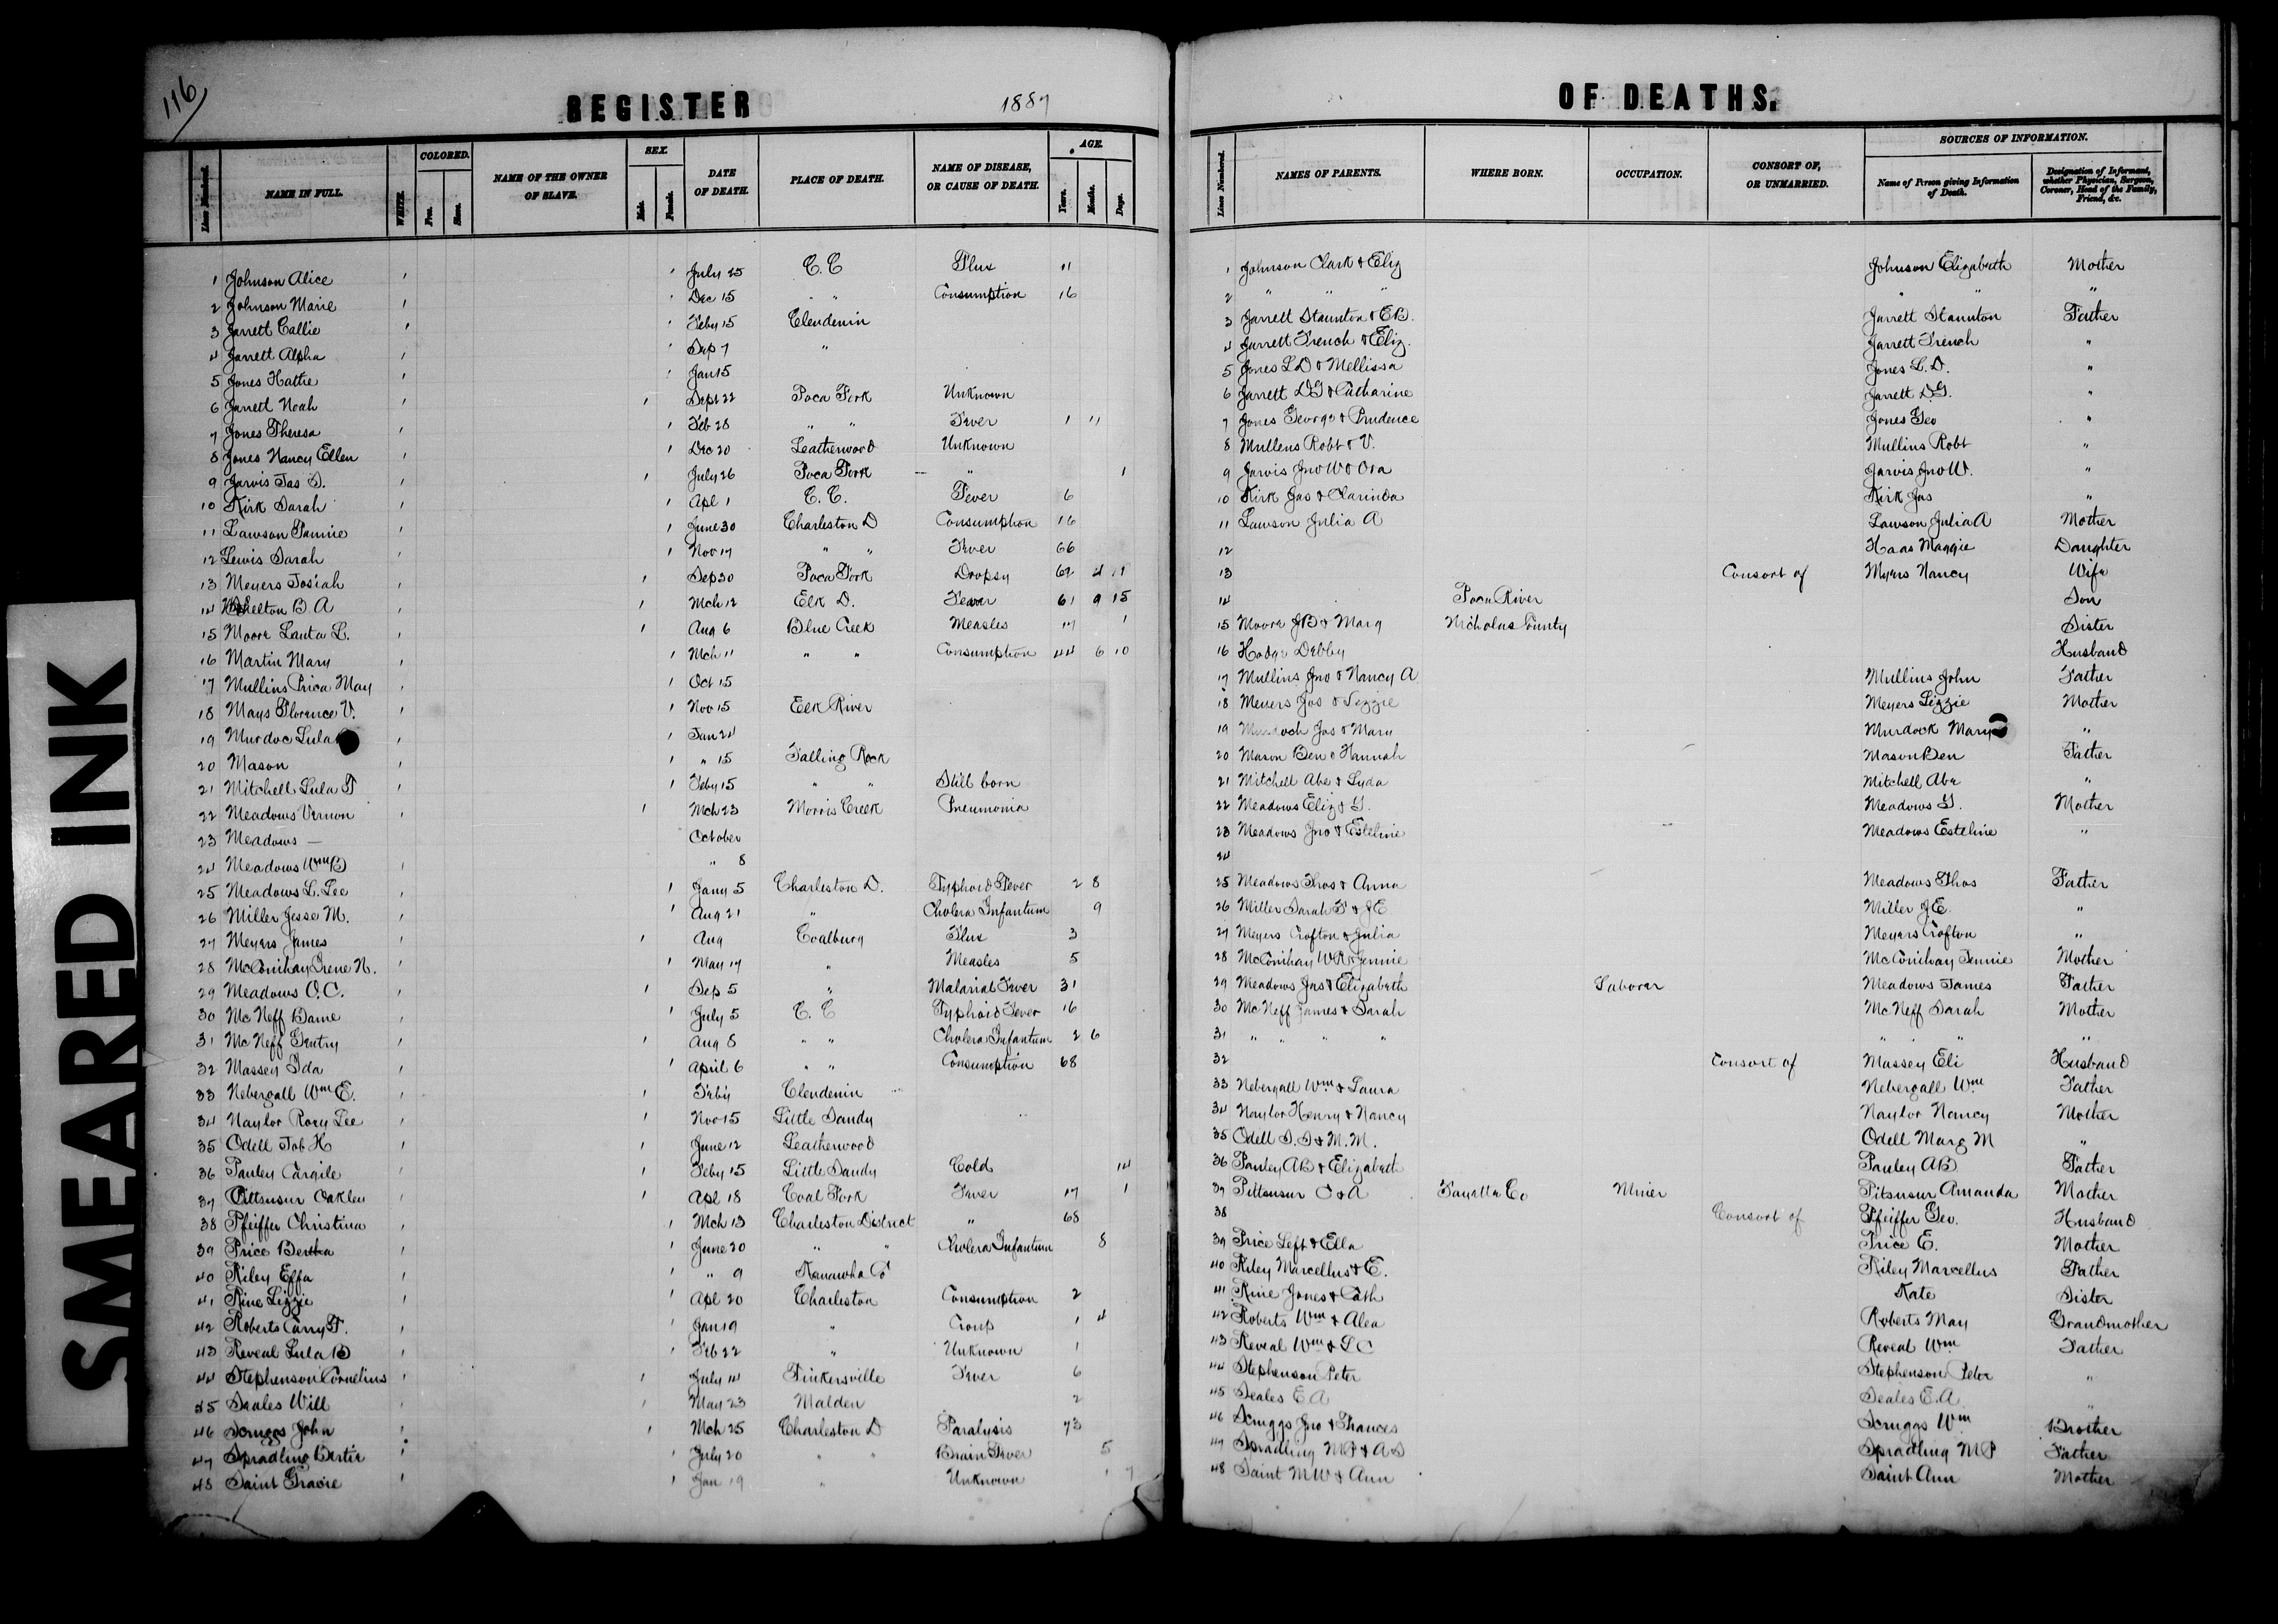 SMEARED INK
116
REGISTER 1887 OF DEATHS.
Lines Numbered. NAME IN FULL. WHITE. COLORED. Free. Slave. NAME OF THE OWNER OF SLAVE. SEX. Male. Female. DATE OF DEATH. PLACE OF DEATH. NAME OF DISEASE, OR CAUSE OF DEATH. AGE. Years. Months. Days.
Lines Numbered. NAMES OF PARENTS. WHERE BORN. OCCUPATION. CONSORT OF, OR UNMARRIED. SOURCES OF INFORMATION. Name of Person giving Information of Death. Designation of Informant, whether Physician, Surgeon, Coroner, Head of the Family, Friend, &c.
1 Johnson Alice July 25 C. C Flux 11 1 Johnson Clark & Eliz Johnson Elizabeth Mother
2 Johnson Marie Dec 15 " " Consumption 16 2 " " " " " "
3 Jarrett Callie Feby 15 Clendenin 3 Jarrett Staunton & E B. Jarrett Staunton Father
4 Jarrett Alpha Sep 7 " 4 Jarrett French & Eliz. Jarrett French "
5 Jones Hattie Jan 15 5 Jones L D & Mellissa Jones L. D. "
6 Jarrett Noah Sept 22 Poca Fork Unknown 6 Jarrett D G & Catharine Jarrett D. G. "
7 Jones Theresa Feb 28 " " Fever 1 11 7 Jones George & Prudence Jones Geo "
8 Jones Nancy Ellen Dec 20 Leatherwood Unknown 8 Mullens Robt & V. Mullins Robt "
9 Jarvis Jas S. July 26 Poca Fork " 1 9 Jarvis Jno W & Ora Jarvis Jno W. "
10 Kirk Sarah Apl 1 C. C. Fever 6 10 Kirk Jas & Clarinda Kirk Jas "
11 Lawson Fannie June 30 Charleston D Consumption 16 11 Lawson Julia A Lawson Julia A Mother
12 Lewis Sarah Nov 17 " " Fever 66 12 Haas Maggie Daughter
13 Meyers Josiah Sep 30 Poca Fork Dropsy 4 11 13 Consort of Myers Nancy Wife
14 Shelton B A Mch 12 Elk D. Fever 61 9 15 14 Poca River Son
15 Moore L. Aug 6 Blue Creek Measles 17 1 15 Moore J B & Marg Nicholas County Sister
16 Martin Mary Mch 11 " " Consumption 44 6 10 16 Hodge Debby Husband
17 Mullins May Oct 15 17 Mullins Jno & Nancy A Mullins John Father
18 Mays Florence V. Nov 15 Elk River 18 Meyers Jos & Lizzie Meyers Lizzie Mother
19 Murdoc Lula Jan 24 19 Murdoch Jas & Mary Murdock Mary "
20 Mason " 15 Falling Rock 20 Mason Ben & Hannah Mason Ben Father
21 Mitchell Lula F Feby 15 " " Still born 21 Mitchell Abe & Lyda Mitchell Abe "
22 Meadows Vernon Mch 23 Morris Creek Pneumonia 22 Meadows Eliz & G. Meadows G. Mother
23 Meadows — October 23 Meadows Jno & Esteline Meadows Esteline "
24 Meadows Wm B " 8 24
25 Meadows L. Lee Jany 5 Charleston D. Typhoid Fever 2 8 25 Meadows Thos & Anna Meadows Thos Father
26 Miller Jesse M. Aug 21 " Cholera Infantum 9 26 Miller Sarah F & J E Miller J E. "
27 Meyers James Aug Coalburg Flux 3 27 Meyers Crofton & Julia Meyers Crofton "
28 McConihay Irene N. May 17 " Measles 5 28 McConihay W R & Jennie McConihay Jennie Mother
29 Meadows O. C. Sep 5 " Malarial Fever 31 29 Meadows Jas & Elizabeth Laborer Meadows James Father
30 McNeff Bame July 5 C. C Typhoid Fever 16 30 McNeff James & Sarah McNeff Sarah Mother
31 McNeff Gentry Aug 8 " " Cholera Infantum 2 6 31 " " " " " " " "
32 Massey Ida April 6 " " Consumption 68 32 Consort of Massey Eli Husband
33 Nebergall Wm E. Feby Clendenin 33 Nebergall Wm & Laura Nebergall Wm Father
34 Naylor Rory Lee Nov 15 Little Sandy 34 Naylor Henry & Nancy Naylor Nancy Mother
35 Odell Job H June 12 Leatherwood 35 Odell S. S & M. M. Odell Marg M "
36 Pauley Cargile Feby 15 Little Sandy Cold 14 36 Pauley A B & Elizabeth Pauley A B Father
37 Pittsnsur Oakley Apl 18 Coal Fork Fever 17 1 37 Pittsnsur C & A Fayette Co Miner Pitsnsur Amanda Mother
38 Pfeiffer Christina Mch 13 Charleston District " 68 38 Consort of Pfeiffer Geo. Husband
39 Price Bertha June 20 " " Cholera Infantum 8 39 Price Left & Ella Price E. Mother
40 Riley Effa " 9 Kanawha Co 40 Riley Marcellus & E. Riley Marcellus Father
41 Rine Lizzie Apl 20 Charleston Consumption 2 41 Rine Jones & Cath Kate Sister
42 Roberts Carry F. Jan 19 " Croup 1 4 42 Roberts Wm & Alea Roberts May Grandmother
43 Reveal Lula B Feb 22 " Unknown 1 43 Reveal Wm & L C Reveal Wm Father
44 Stephenson Cornelius July 14 Tinkersville Fever 6 44 Stephenson Peter Stephenson Peter "
45 Seales Will May 23 Malden 2 45 Seales E A Seales E. A. "
46 Scruggs John Mch 25 Charleston D Paralysis 73 46 Scruggs Jno & Frances Scruggs Wm Brother
47 Spradling Bertie July 20 " " Brain Fever 5 47 Spradling M P & A S Spradling M P Father
48 Saint Gracie Jan 19 " Unknown 1 7 48 Saint M W & Ann Saint Ann Mother